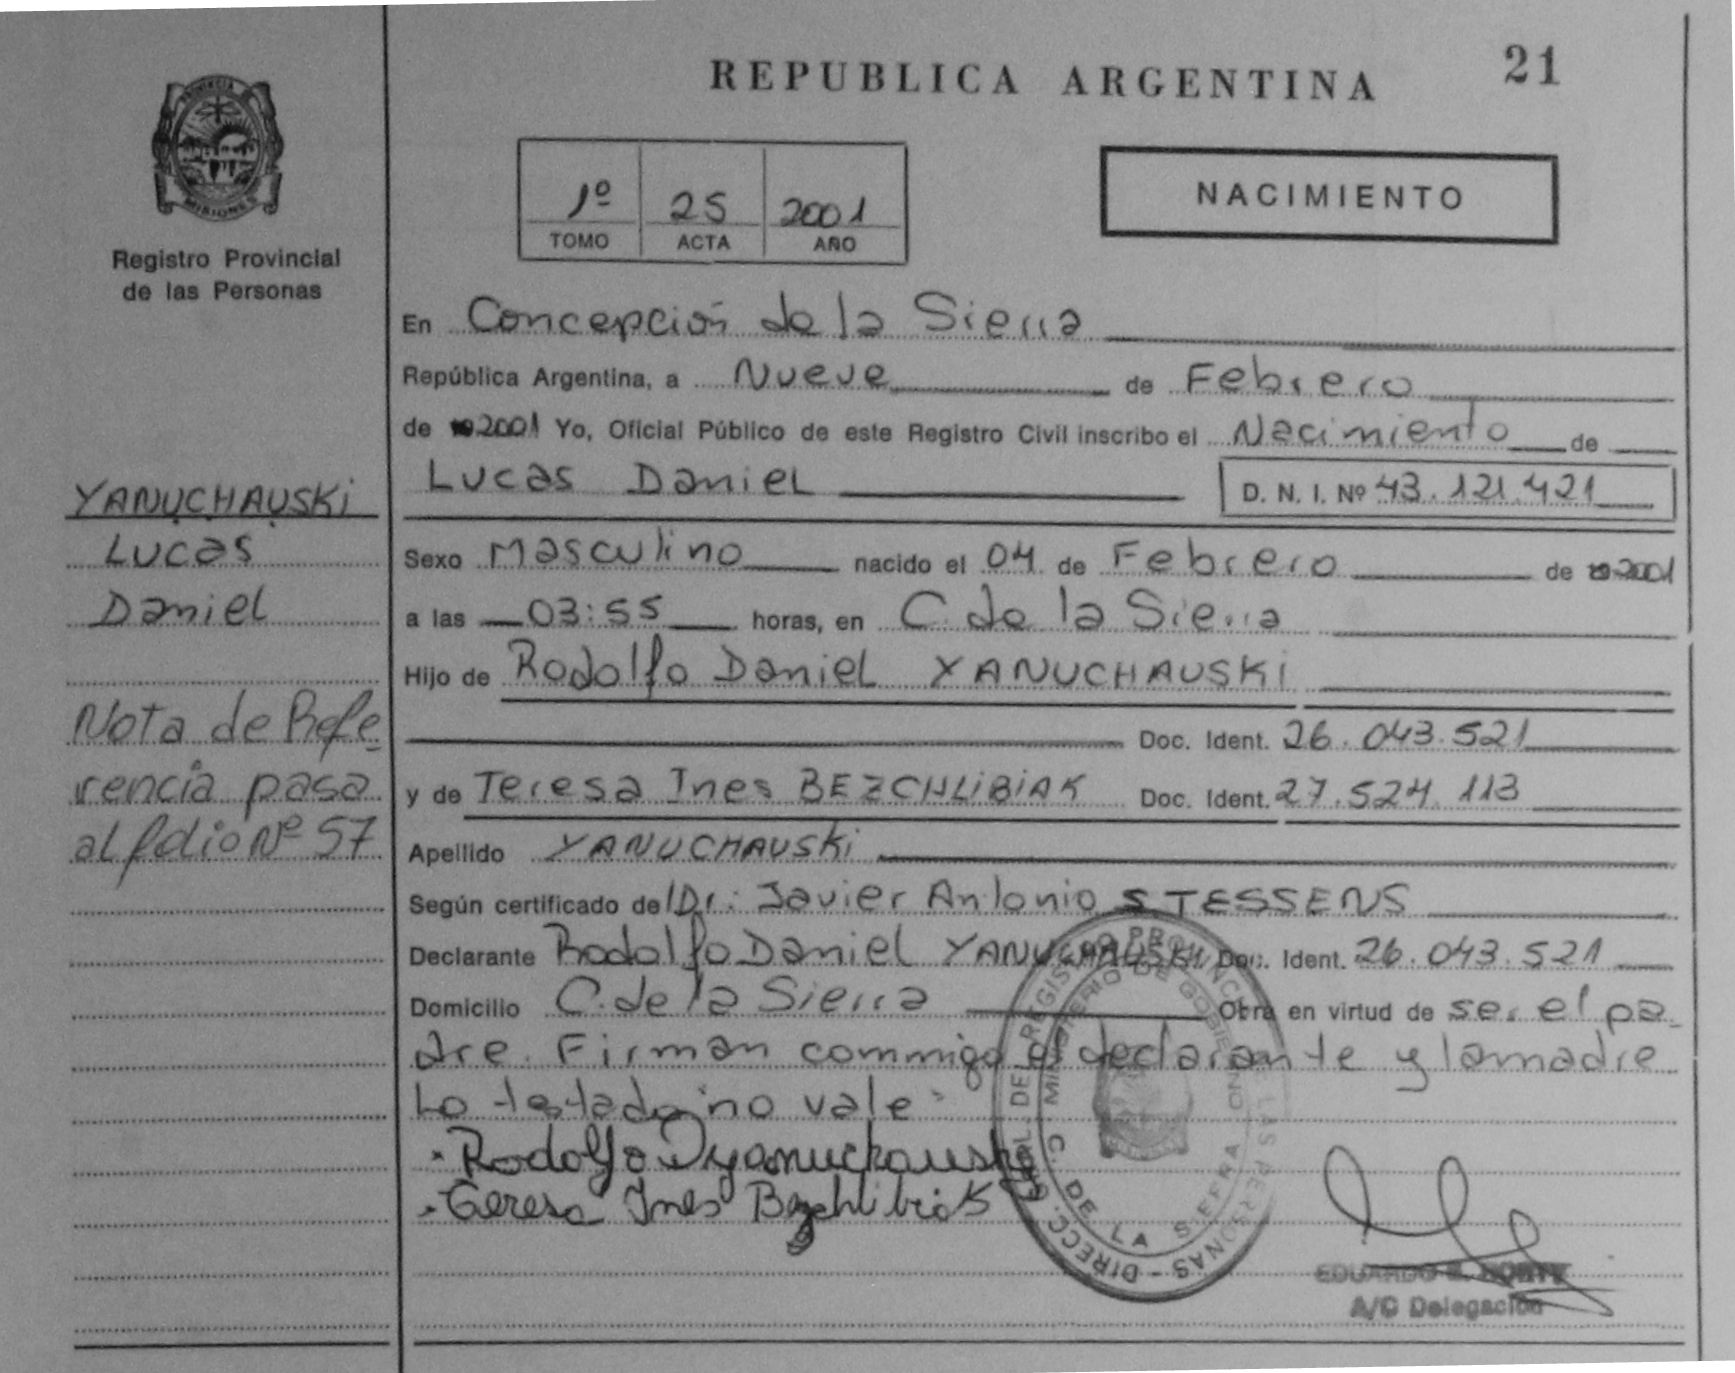 REPUBLICA ARGENTINA
21
PROVINCIA DE
MISIONES
Registro Provincial
de las Personas
1º 25 2001
TOMO ACTA AÑO
NACIMIENTO
En Concepción de la Sierra
República Argentina, a Nueve de Febrero
de 2001 Yo, Oficial Público de este Registro Civil inscribo el Nacimiento de
Lucas Daniel D. N. I. Nº 43.121.421
YANUCHAUSKi
Lucas
Daniel
Sexo Masculino nacido el 04 de Febrero de 2001
a las 03:55 horas, en C. de la Sierra
Hijo de Rodolfo Daniel YANUCHAUSKi
Doc. Ident. 26.043.521
y de Teresa Ines BEZCHLIBIAK Doc. Ident. 27.524.113
Apellido YANUCHAUSKi
Nota de Refe
rencia pasa
al folio Nº 57
Según certificado del Dr: Javier Antonio STESSENS
Declarante Rodolfo Daniel YANUCHAUSKi Doc. Ident. 26.043.521
Domicilio C. de la Sierra Obra en virtud de ser el pa
dre. Firman commigo el declarante y la madre
Lo testado no vale
Rodolfo D yanuchauski
Teresa Ines Bezchlibiak
DIRECC. GRAL. DEL REGISTRO PROVINCIAL DE LAS PERSONAS
MINISTERIO DE GOBIERNO
C. DE LA SIERRA
EDUARDO
A/C Delegación